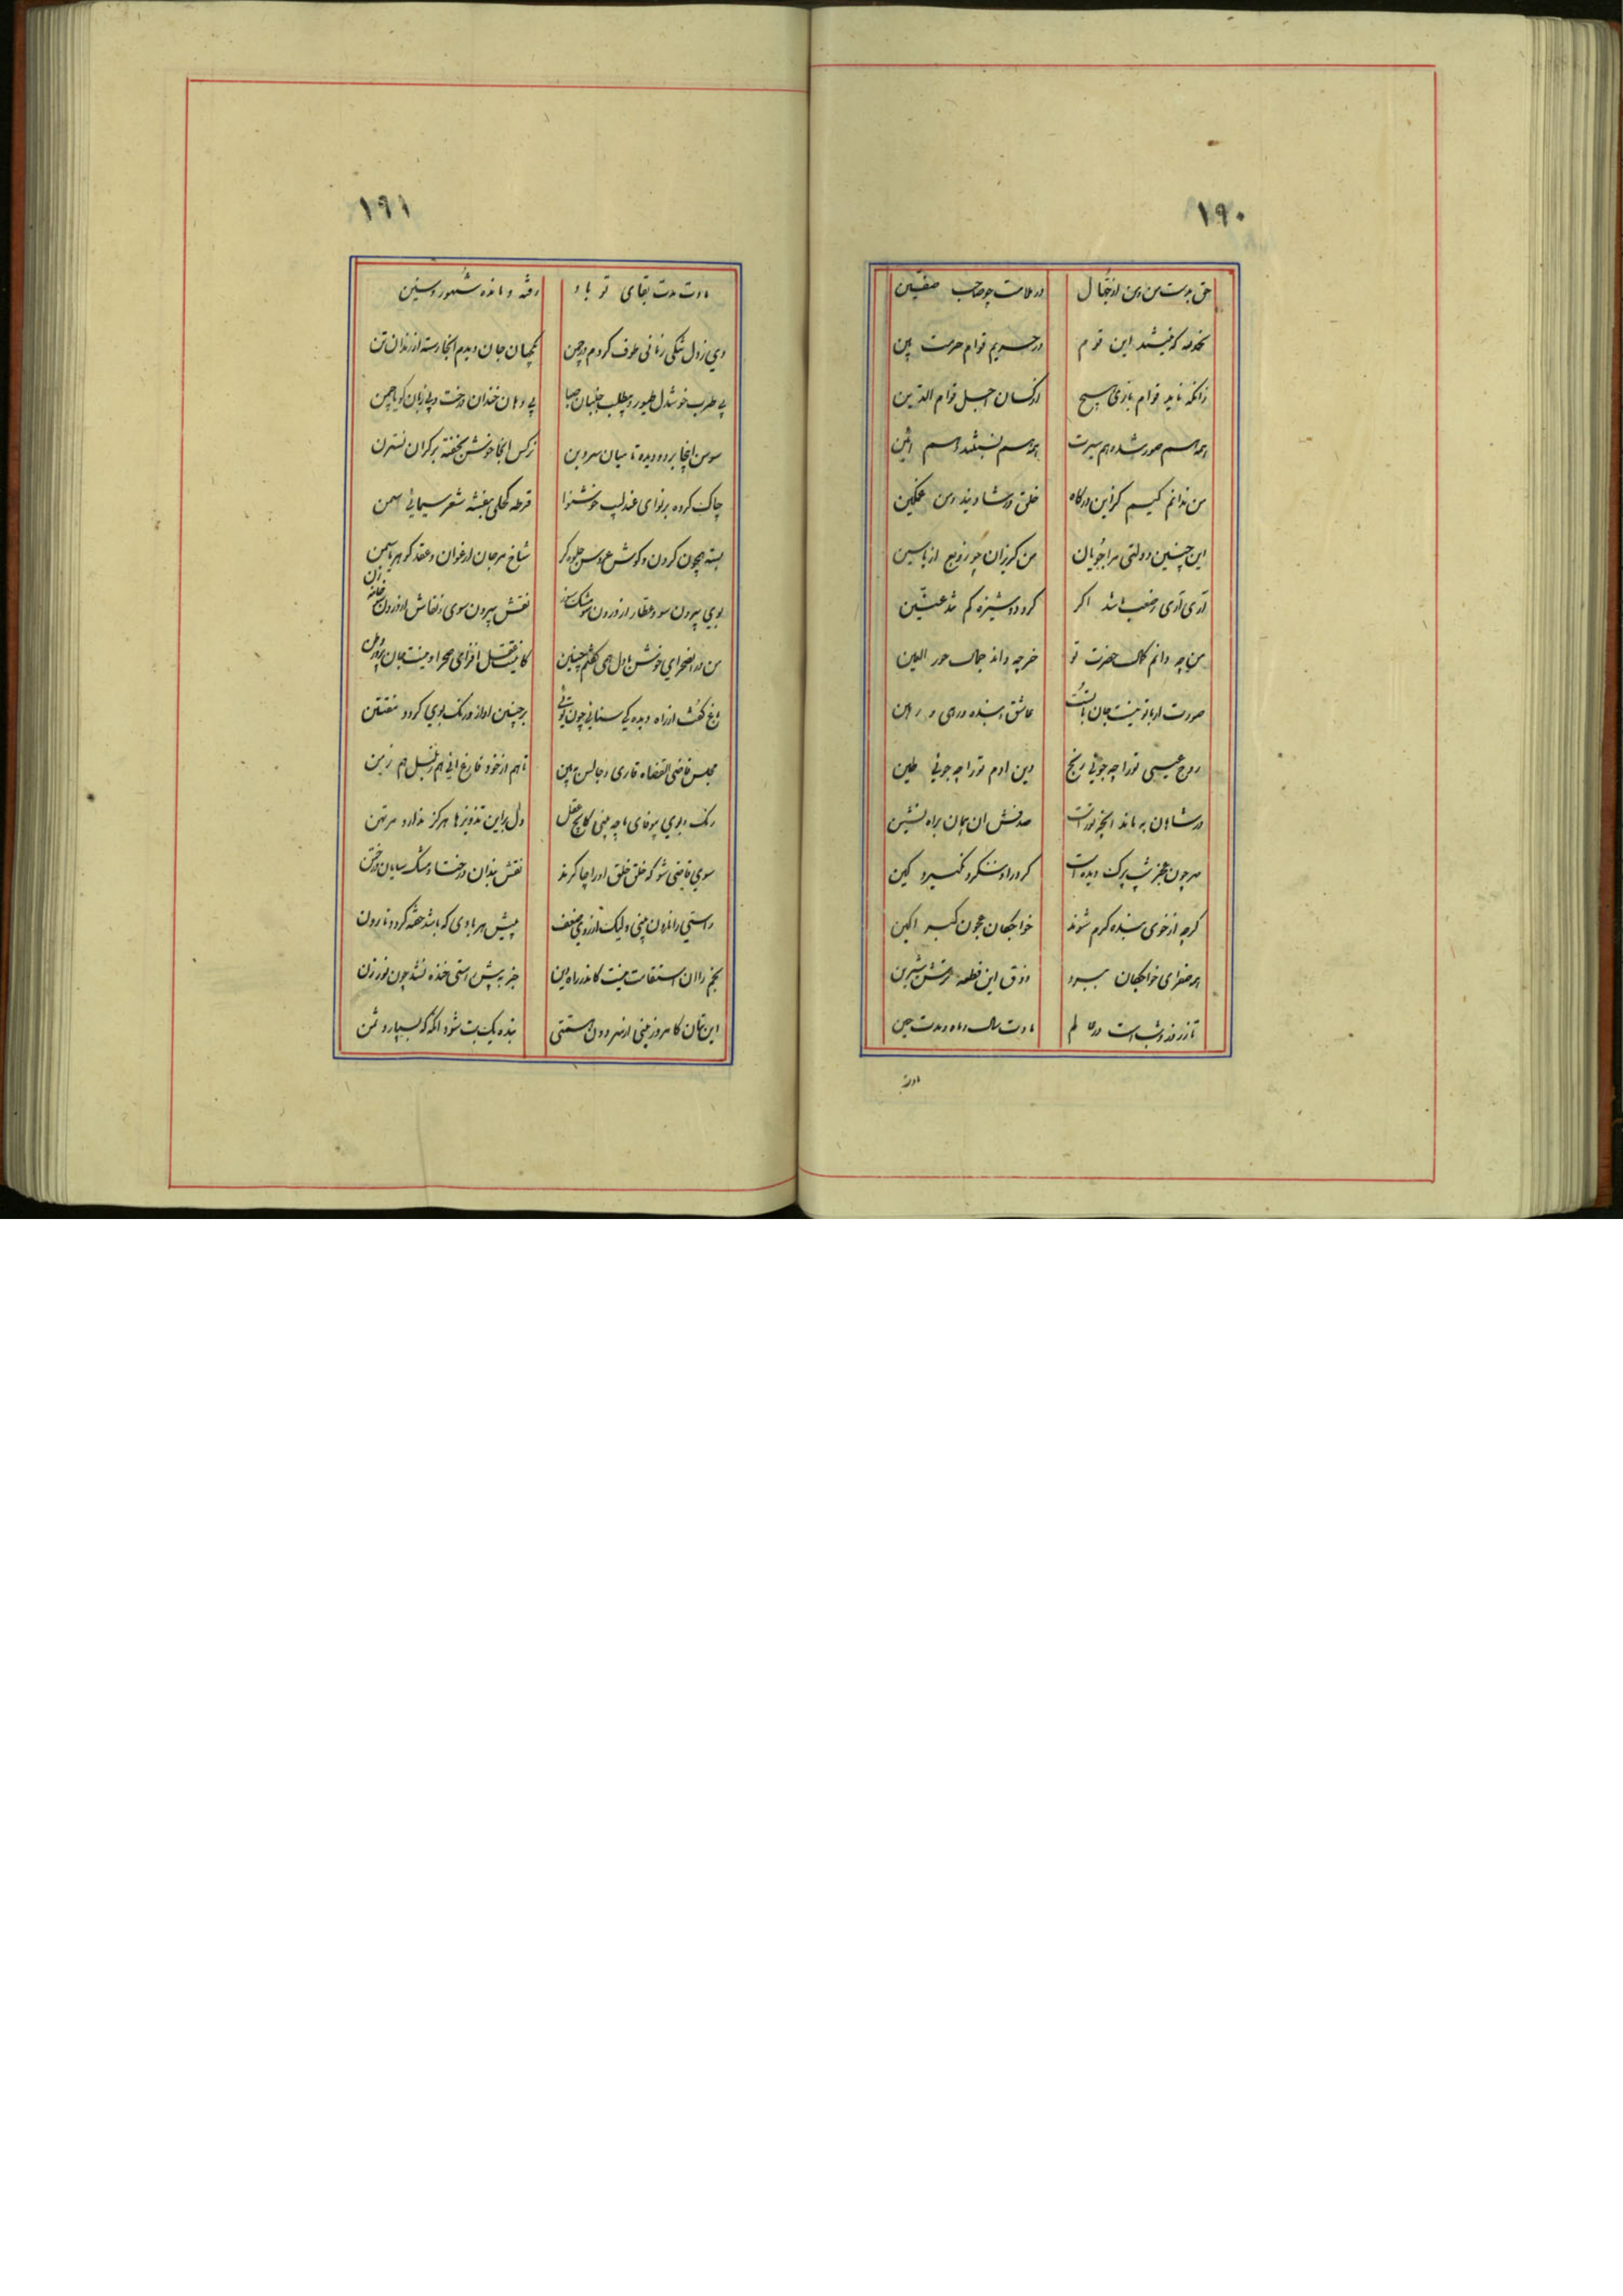 ۱۹۰
حق بدست من و من از جهال
در ملامت چو صاحب صفین
همه کوفیند این قوم
در حریم قوام حرمت بین
زانکه ناید قوام بازی هیچ
از کسان اجل قوام الدین
همه هم صورتند و هم سیرت
همه هم نسبتند و هم آئین
من ندانم کیم کزین درگاه
خلق در شادیند و من غمگین
این چنین دولتی مرا جویان
من گریزان چو از
آری آری ضعیف باشد اگر
گرد دوشیزه کم تند عنین
من چه دانم کمال حضرت تو
خر چه داند جمال حور العین
صورت ار با تو نیست جان با تست
عاشق و بنده و رهی و رهین
روح عیسی تو را چه جوئی رنج
دین آدم تو را چه جوئی طین
در شاهان به ماند آنچه تو راست
صدفش آن همان براه نشین
مهر چون عجز شب پرک دیده است
گر درو ننگرد نگیرد کین
گرچه از خوی بنده گرم شوند
خواجگان عجون کبر آگین
همه صفرای خواجگان ببرد
ذوق این قطعه ترش شیرین
تا ز روز و شب است در عالم
مادت سال و ماه و مدت حین
مادت
۱۹۱
مادت مدت بقای تو باد
رفته و مانده شهور و سنین
دی ز دل تنگی زمانی طوف کردم در چمن
یک جهان جان دیدم آنجا رسته از زندان تن
بی طرب خوشدل طیور و بی طلب جنبان صبا
بی دهان خندان درخت و بی زبان گویا چمن
سوسن آنجا بر دویده تا میان سرو بن
نرگس آنجا خوش بخفته بر کران نسترن
چاک کرده بر نوای عندلیب خوشنوا
قرطه کحلی بنفشه شعر سیمائی سمن
بسته همچون گردن و گوش عروس جلوه گر
شاخ مرجان ارغوان و عقد گوهر یاسمن
بوی بیرون سو و عطار از درون سو مشک سای
نقش بیرون سوی و نقاش از درون سو خامه زن
من در آن صحرای خوش با دل همی گفتم چنین
کاینت عقل افزای صحرا وینت جان پرور وطن
باغ گفت از راه دیده کی سنائی چون توئی
بر چنین آواز و رنگ و بوی گردد مفتتن
مجلس قاضی القضاه قاری و جالس ببین
تا هم از خود فارغ آئی هم ز بلبل هم ز من
رنگ و بوی بیوفای ما چه بینی کاهل عقل
دل بر این تزویرها هرگز ندارد مرتهن
سوی قاضی شو که خلق و خلق او را چاکرند
نقش بندان در خطا و مشک سایان در ختن
راستی را ماردون بینی ولیک از روی ضعف
پیش هر بادی که باشد خفته گردد نارون
نجم را آن استقامت نیست کاندر راه دین
جز به پیش راستی خنده نشد چون نورزن
این بتان کامروز بینی از سر دون همتی
بنده یک بت شود آنکه که بسپارد ثمن